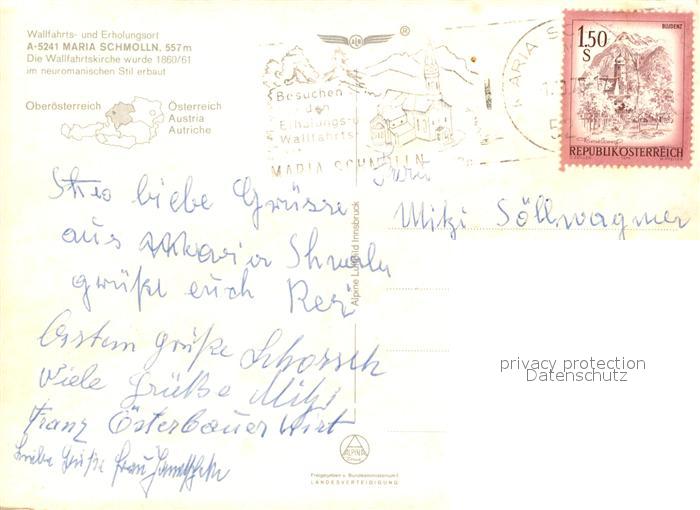 Wallfahrts- und Erholungsort
A-5241 MARIA SCHMOLLN, 557m
Die Wallfahrtskirche wurde 1860/61
im neuromanischen Stil erbaut
Oberösterreich
Österreich
Austria
Autriche
Besuchen
den
Erholungs-u
Wallfahrts
MARIA SCHMOLLN
MARIA SC
1.50
S
BLUDENZ
REPUBLIK ÖSTERREICH
liebe Grüsse
aus Maria Shmoln
grüßt euch Resi
Mitzi Söllwagner
grüße Schorsch
Viele Grüße Mitzi
Franz Österbauer Wirt
Liebe Grüße Frau
Alpine Luftbild Innsbruck
privacy protection
Datenschutz
ALPINA
Freigegeben v. Bundesministerium f.
LANDESVERTEIDIGUNG